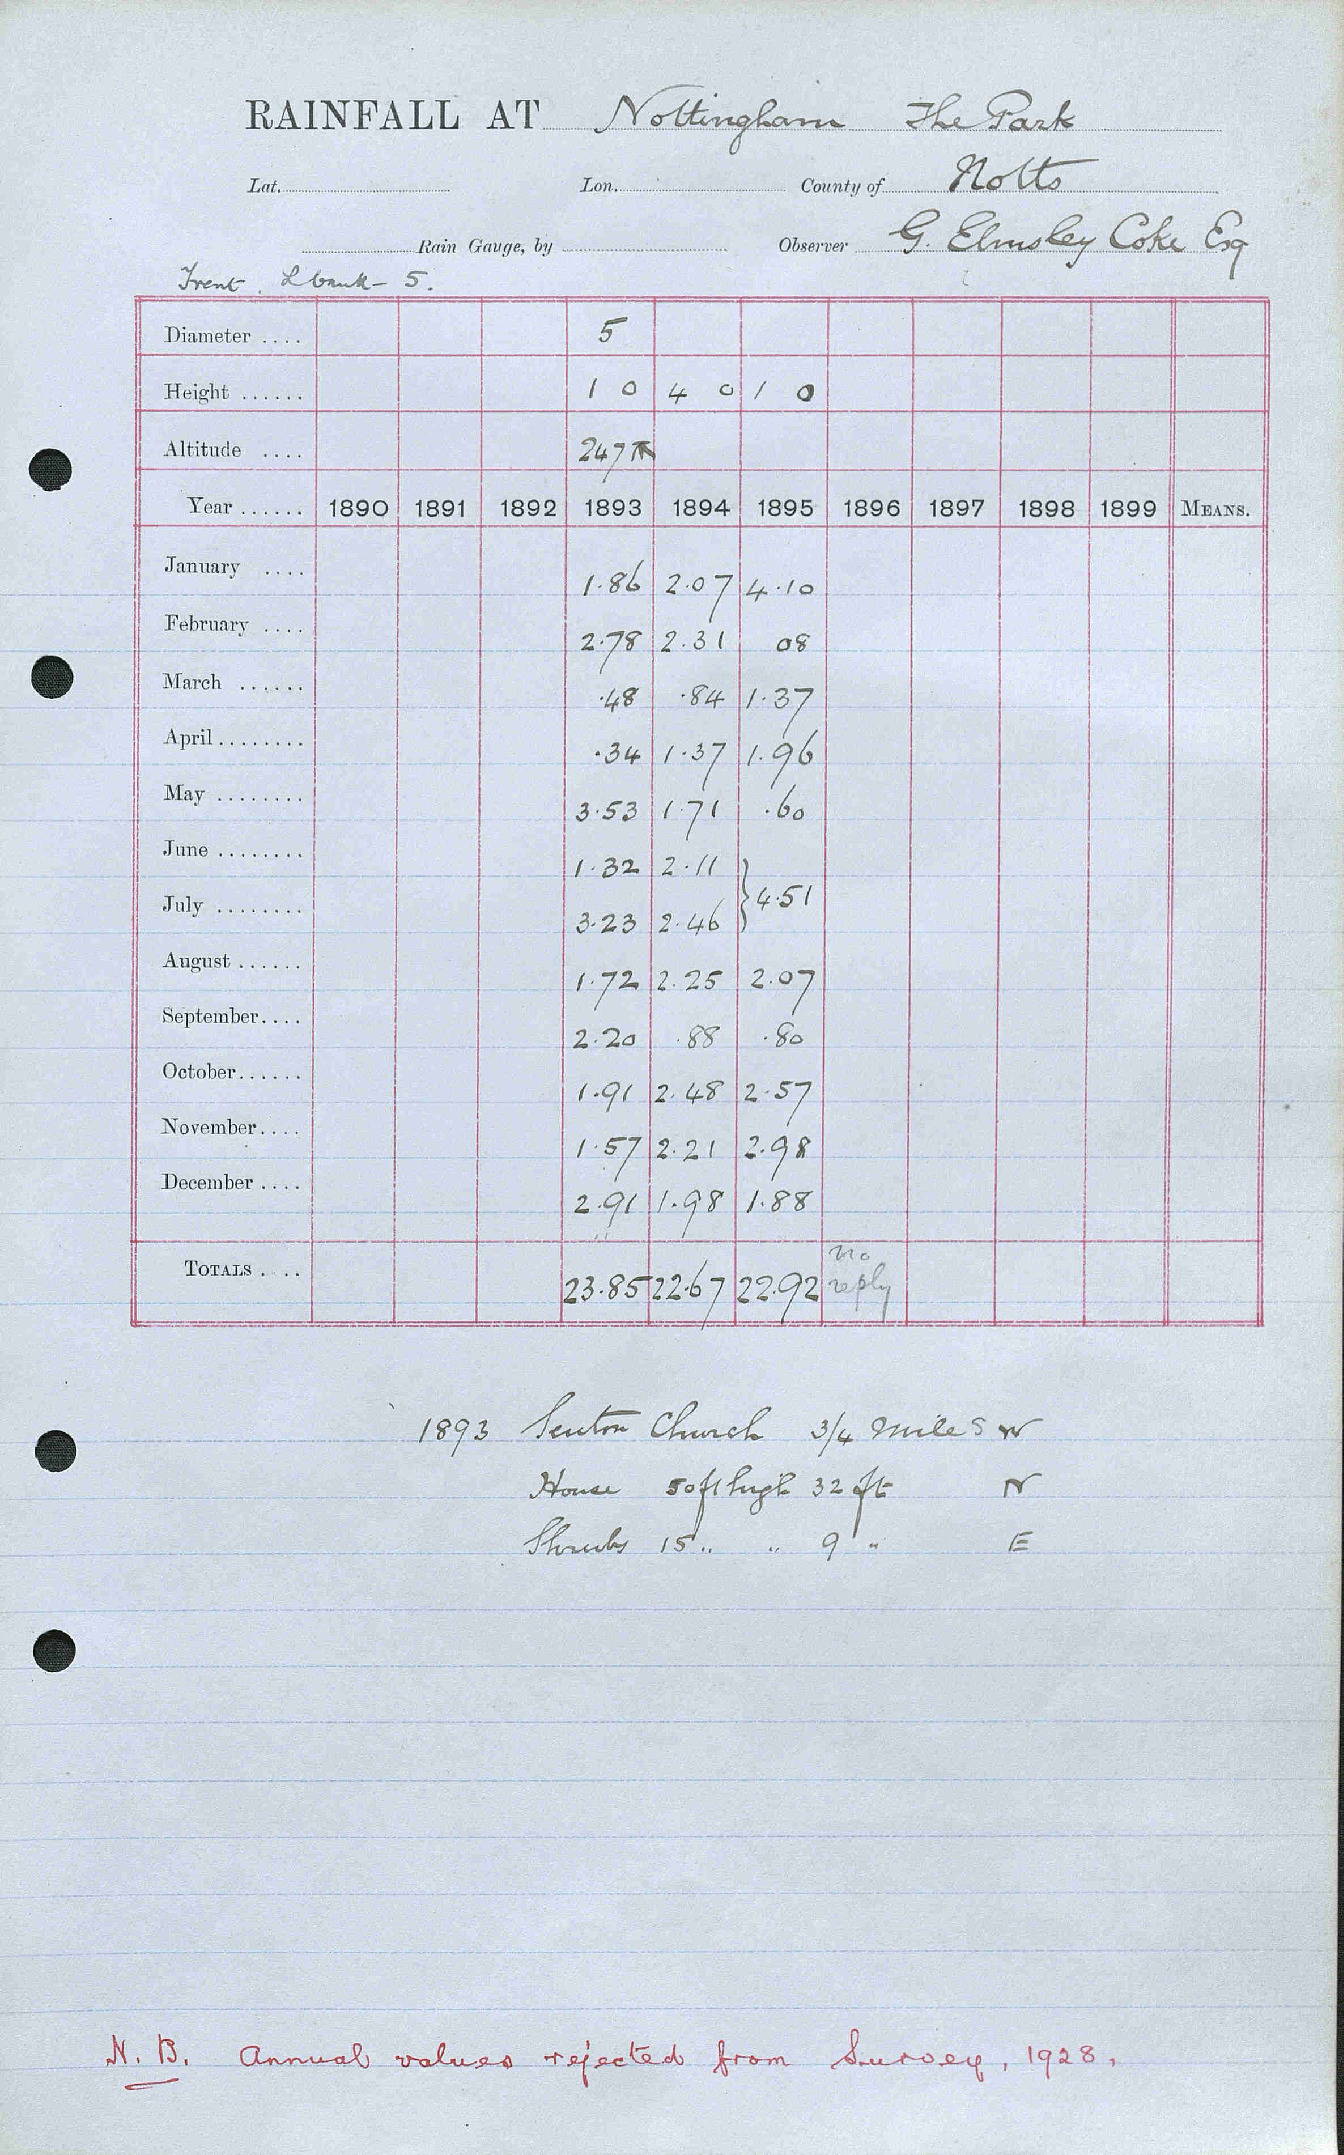 RAINFALL AT Nottingham The Park
Lat. Lon. County of Notts
Rain Gauge, by Observer G. Elmsley Coke Esq
Trent. L bank - 5.
Diameter .... 5
Height ...... 1 0 4 0 1 0
Altitude .... 247
Year ...... 1890 1891 1892 1893 1894 1895 1896 1897 1898 1899 MEANS.
January .... 1.86 2.07 4.10
February .... 2.78 2.31 08
March ...... .48 .84 1.37
April ........ .34 1.37 1.96
May ........ 3.53 1.71 .60
June ........ 1.32 2.11
} 4.51
July ........ 3.23 2.46
August ...... 1.72 2.25 2.07
September.... 2.20 .88 .80
October...... 1.91 2.48 2.57
November.... 1.57 2.21 2.98
December .... 2.91 1.98 1.88
TOTALS .... 23.85 22.67 22.92 no reply
1893 Lenton Church 3/4 mile S W
House 50 ft high 32 ft N
Shrubs 15 " " 9 " E
N. B. Annual values rejected from Survey, 1928.